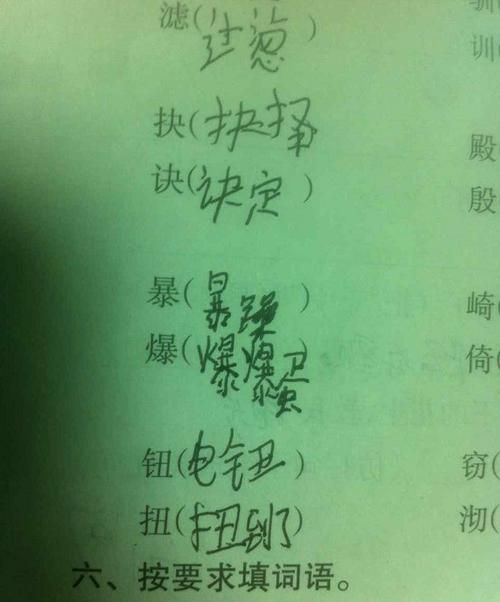 滤(过滤) 训
抉(抉择) 殿
诀(诀定) 殷
暴(暴躁) 崎(
爆(爆爆) 倚(
钮(电钮) 窃(
扭(扭到了) 沏(
六、按要求填词语。